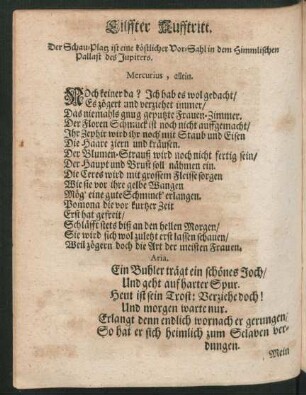 Eilffter Aufftritt.
Der Schau-Platz ist eine köstlicher Vor-Sahl in dem Himmlischen
Pallast des Jupiters.
Mercurius, allein.
Noch keiner da? Ich hab es wol gedacht/
Es zögert und verziehet immer/
Das niemahls gnug geputzte Frauen-Zimmer.
Der Floren Schmuck ist noch nicht auffgemacht/
Ihr Zephir wird ihr noch mit Staub und Eisen
Die Haare ziern und kräusen.
Der Blumen-Strauß wird noch nicht fertig sein/
Der Haupt und Brust soll nähmen ein.
Die Ceres wird mit grossem Fleisse sorgen
Wie sie vor ihre gelbe Wangen
Mög' eine gute Schminck' erlangen.
Pomona die vor kurtzer Zeit
Erst hat gefreit/
Schläfft stets biß an den hellen Morgen/
Sie wird sich wol zuletzt erst lassen schauen/
Weil zögern doch die Art der meisten Frauen.
Aria.
Ein Buhler trägt ein schönes Joch/
Und geht auf harter Spur.
Heut ist sein Trost: Verziehe doch!
Und morgen warte nur.
Erlangt denn endlich wornach er gerungen/
So hat er sich heimlich zum Sclaven ver-
dungen.
Mein